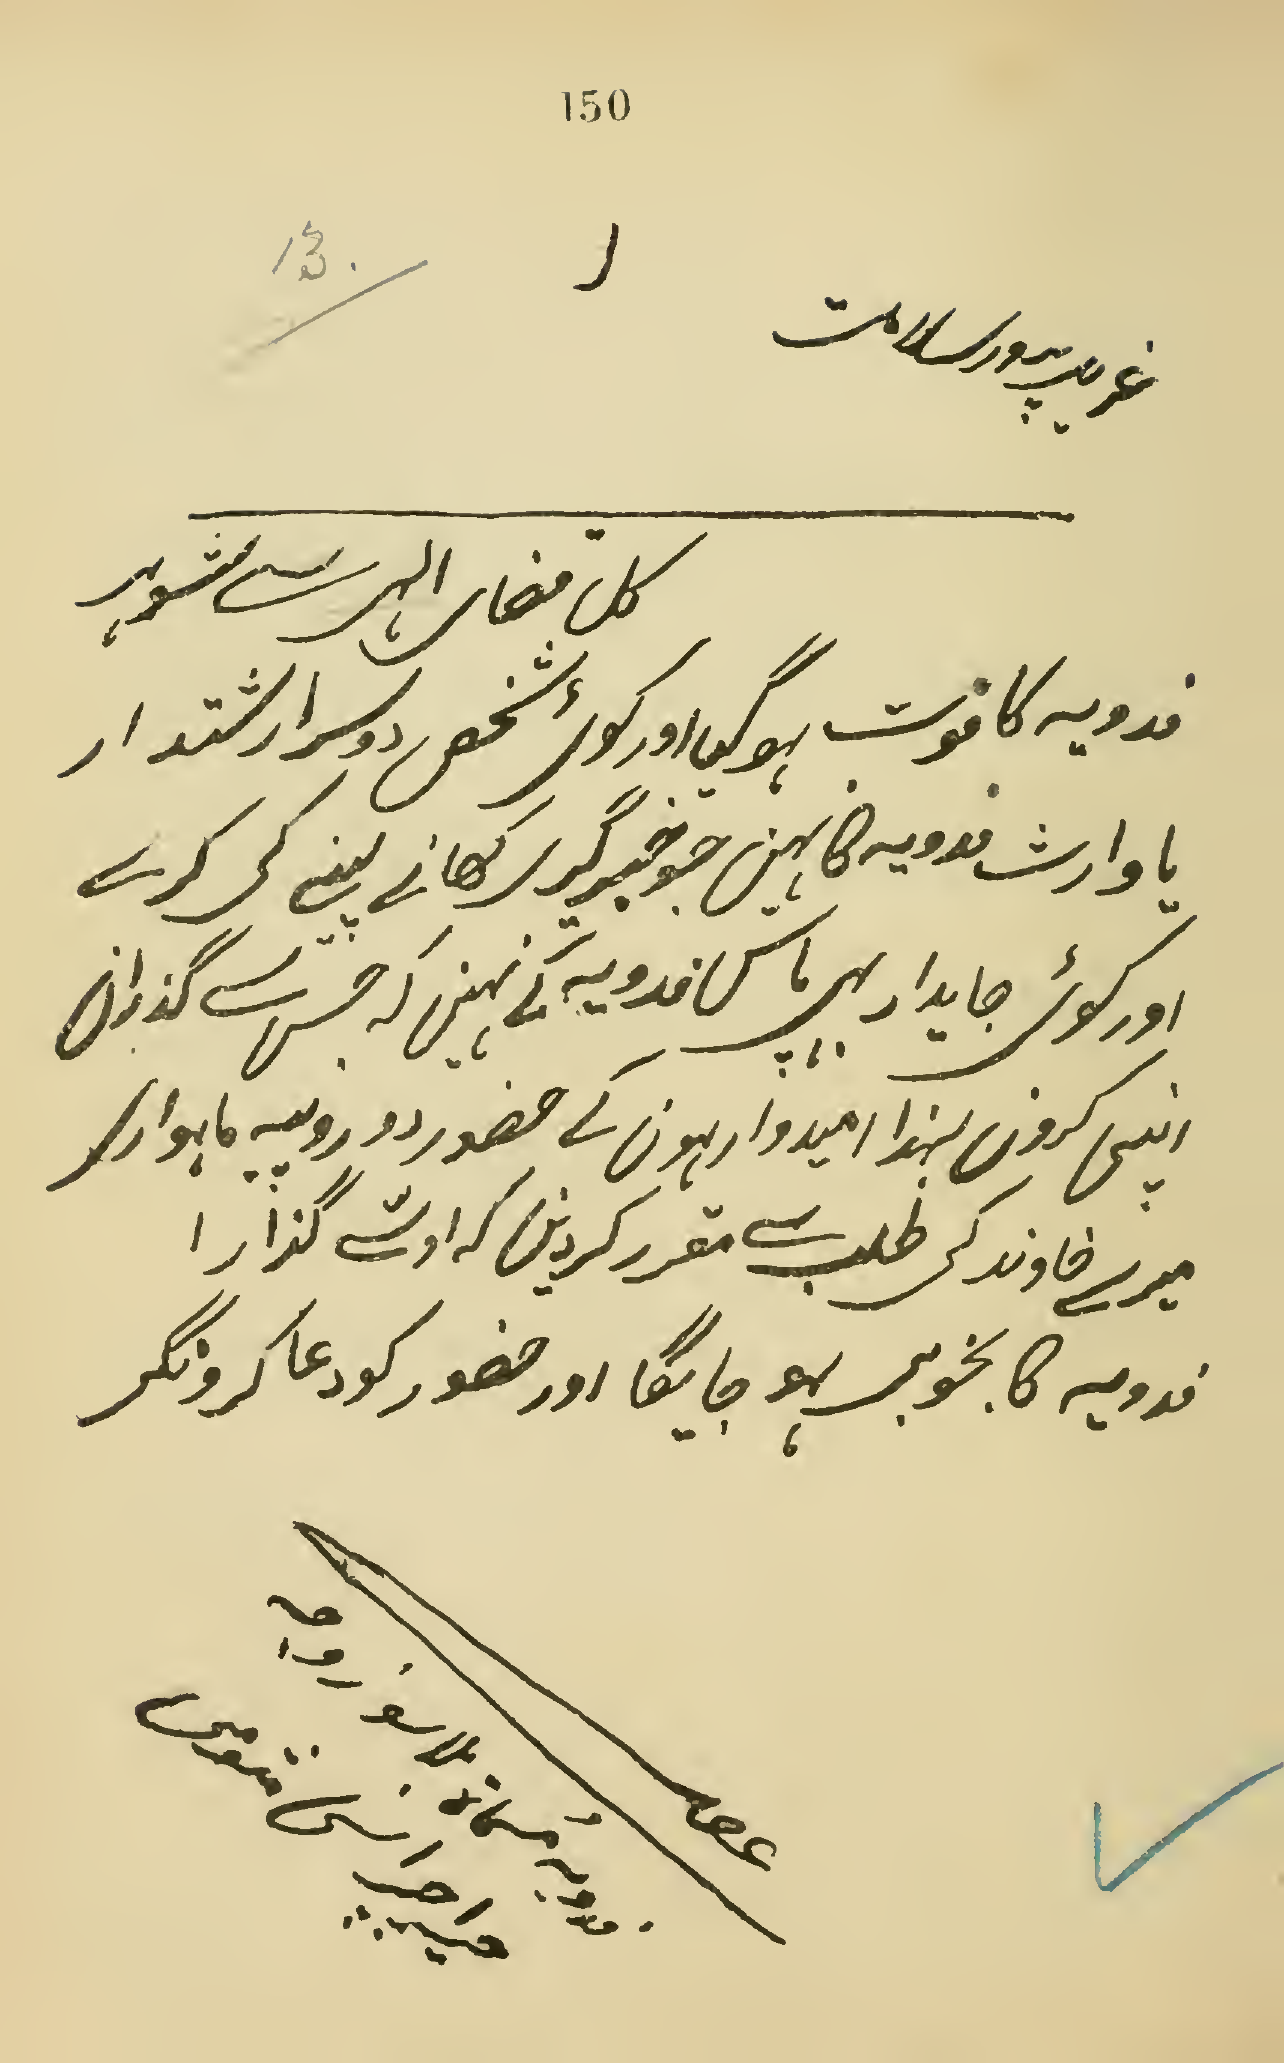 150
۱
غریب پرور سلامت
کل قضای الہی سے شوہر
فدویہ کا فوت ہوگیا اور کوئی شخص دوسرا رشتہ دار
یا وارث فدویہ کا نہین جو خبرگیری کھانے پینے کی کرے
اور کوئی جایداد بہی پاس فدویہ کے نہین کہ جس سے گذران
اپنی کرون لہذا امیدوار ہون کے حضور دو روپیہ ماہواری
میرے خاوند کی طلب سے مقرر کردین کہ اوس سے گذارا
فدویہ کا بخوبی ہو جایگا اور حضور کو دعا کرونگی
فدویہ مسماۃ زوجہ
متوفی